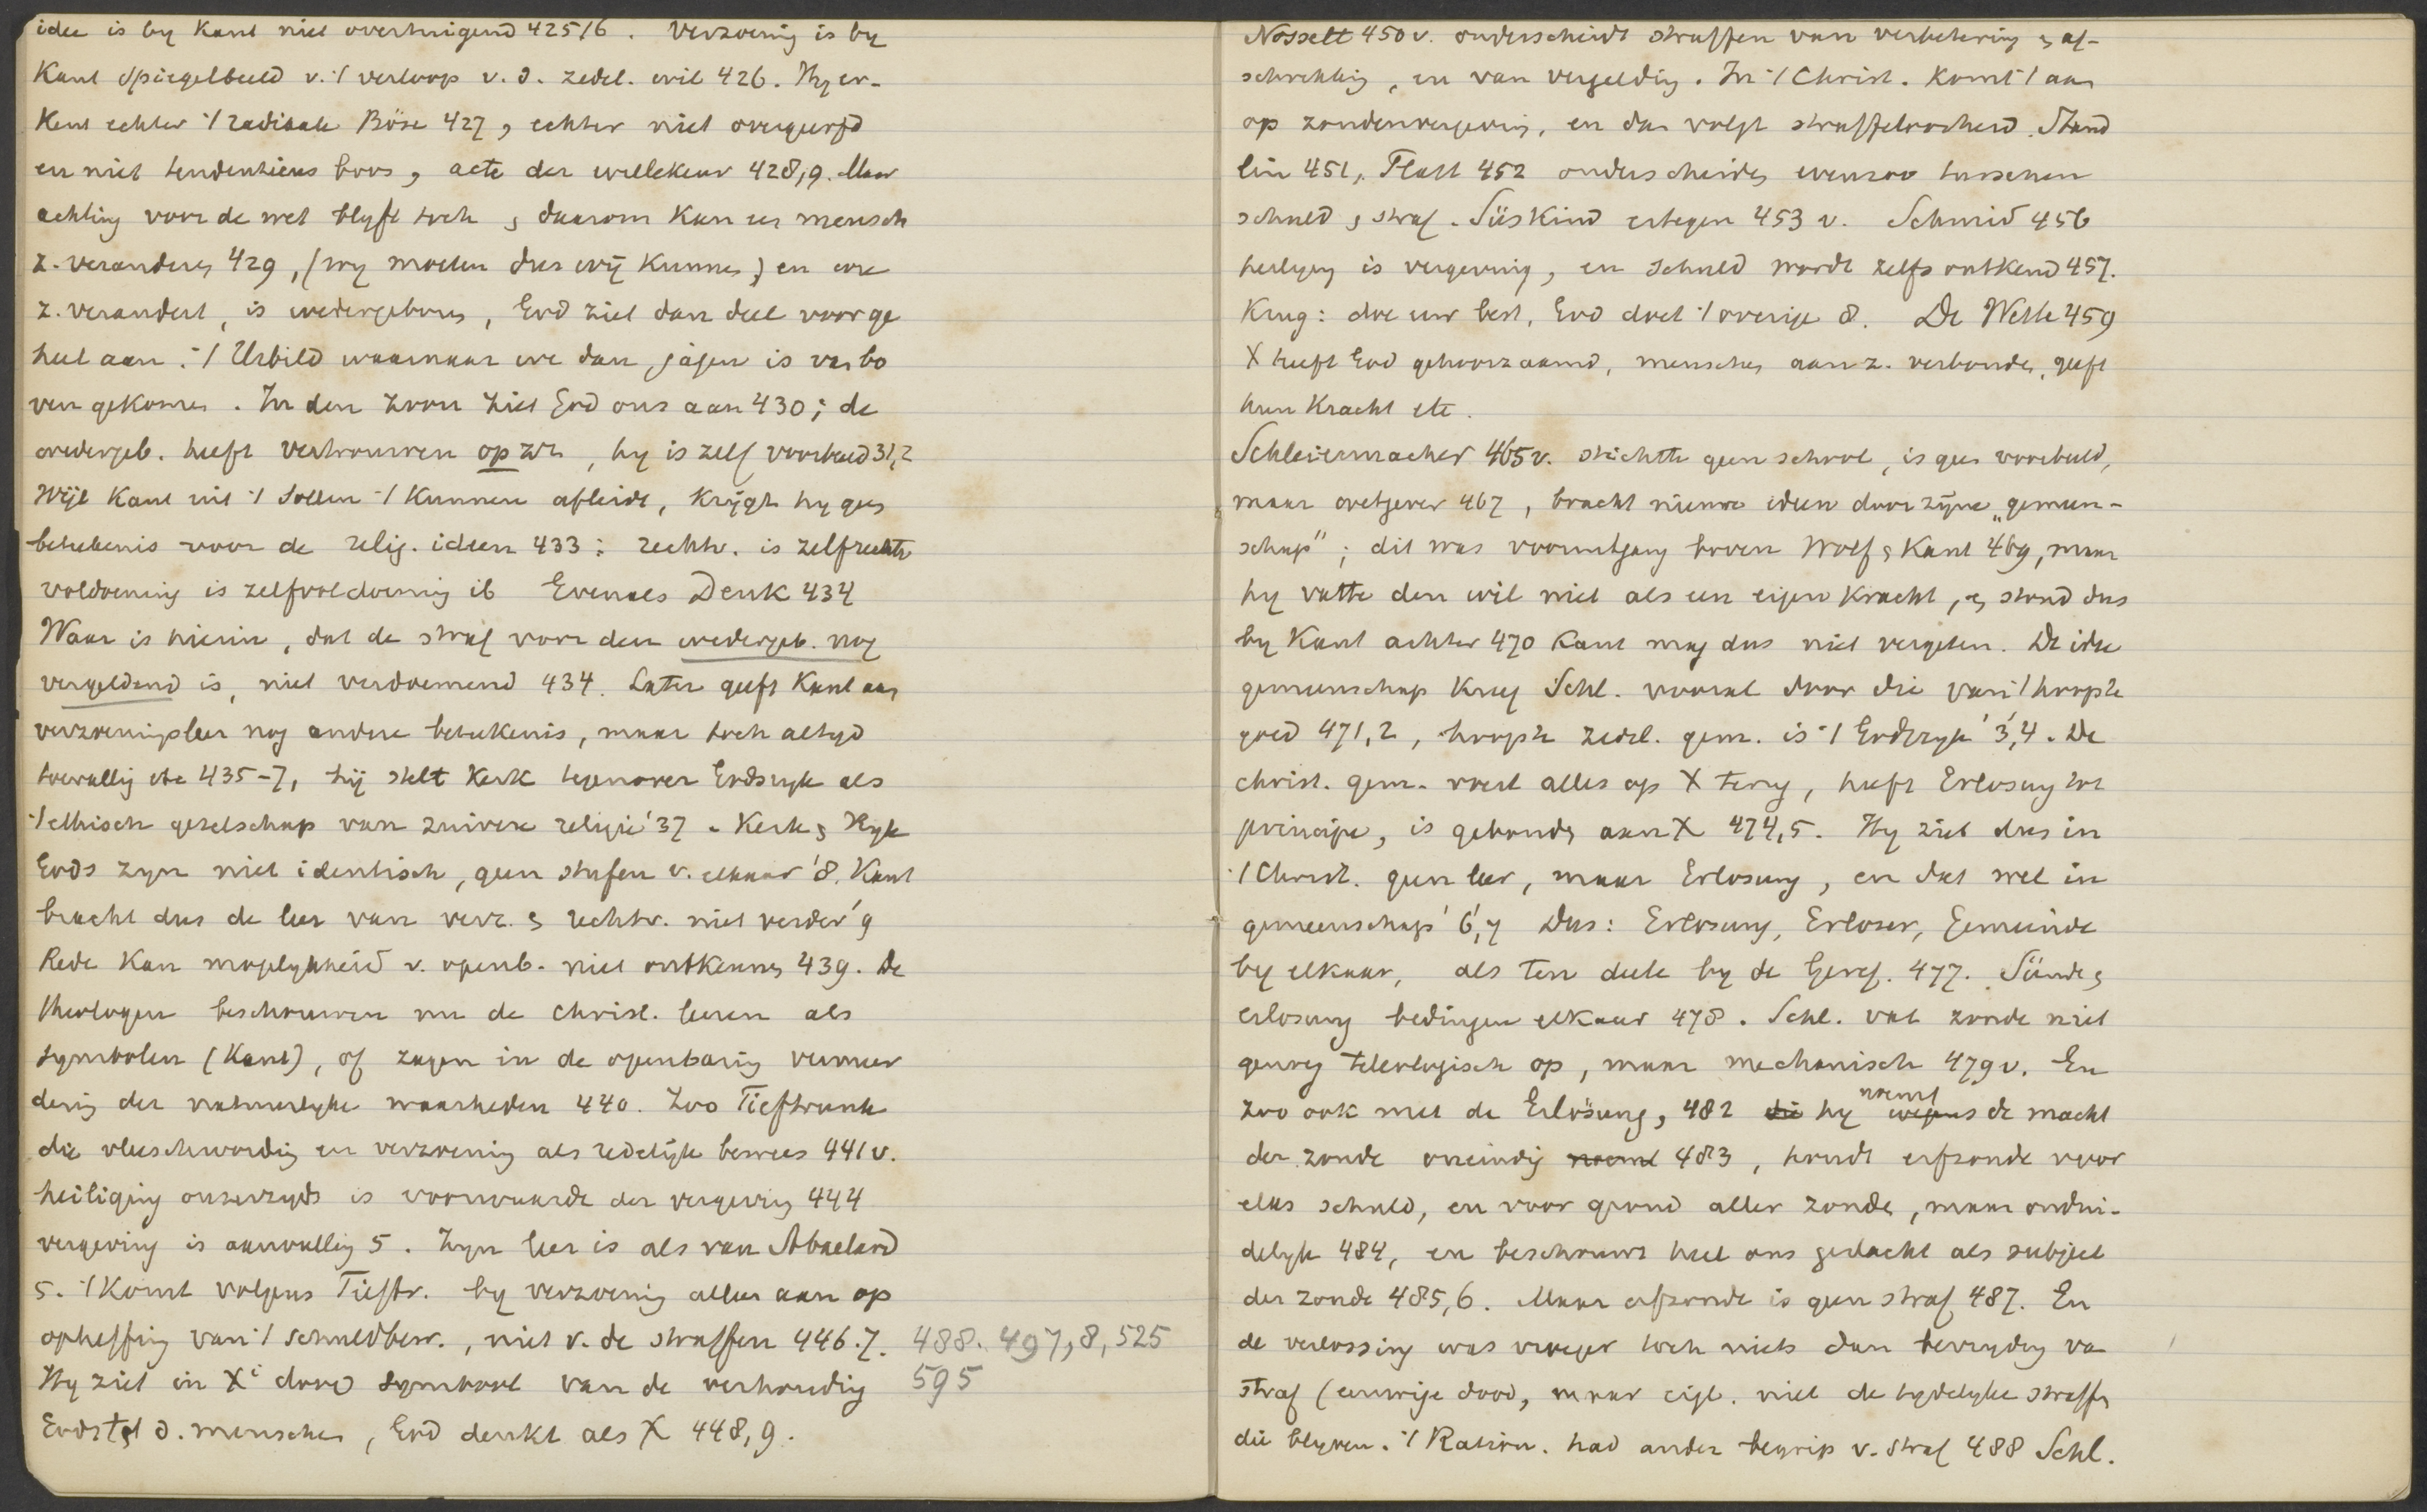 idee is by Kant niet overtuigend 425/6. Verzoening is by
Kant Spiegelbeeld v. 't verloop v. d. zedel. wil 426. Hy er-
Kent echter 't radikale Böse 427, echter niet overgeërfd
en niet tendentieus boos, acte der willekeur 428,9. Maar
achting voor de wet blyft toch & daarom Kan een mensch
z. veranderen 429, (wy moeten dus wij Kunnen) en wie
z. verandert, is wedergeboren, God ziet dan deel voor ge
heel aan. 't Urbild waarnaar we dan jagen is van bo
ven gekomen. In den Zoon ziet God ons aan 430; de
wedergeb. heeft vertrouwen op zich, hy is zelf voorbeeld 31,2
Wijl Kant uit 't Sollen 't Kunnen afleidt, Krijgt hy geen
beteekenis voor de relig. ideen 433: rechtv. is zelfrechtv
voldoening is zelfvoldoening ib Evenals Denk 434
Waar is hierin, dat de straf voor den wedergeb. nog
vergeldend is, niet verdoemend 434. Later geeft Kant aan
verzoeningsleer nog andere beteekenis, maar toch altyd
toevallig etc 435-7, hij stelt Kerk tegenover Godsryk als
't ethisch gezelschap van zuivere religie '37. Kerk & Ryk
Gods zyn niet identisch, geen stufen v. elkaar '8. Kant
bracht dus de leer van verz. & rechtv. niet verder '9
Rede Kan mogelykheid v. openb. niet ontkennen 439. De
theologen beschouwen nu de christ. leeren als
symbolen (Kant), of zagen in de openbaring vermeer
dering der natuurlyke waarheden 440. Zoo Tieftrunk
die vleeschwording en verzoening als redelijk bewees 441 v.
heiliging onzerzyds is voorwaarde der vergeving 444
vergeving is aanvulling 5. Zyn leer is als van Abaelard
5. 't Komt volgens Tieftr. by verzoening alles aan op
opheffing van 't schuldbew., niet v. de straffen 446.7. 488. 497,8,525
Hy ziet in Xi dood symbool van de verhouding 595
Gods tot d. menschen, God denkt als X 448,9.
Nosselt 450 v. onderscheidt straffen van verbetering & af-
schrikking, en van vergelding. In 't Christ. Komt 't aan
op zondenvergeving, en dan volgt straffeloosheid. Staud
lin 451, Flatt 452 onderscheiden evenzoo tusschen
schuld & straf. Süskind ertegen 453 v. Schmid 456
heiliging is vergeving, en schuld wordt zelfs ontkend 457.
Krug: doe uw best, God doet 't overige 8. De Wette 459
X heeft God gehoorzaamd, menschen aan z. verbonden, geeft
hun Kracht etc.
Schleiermacher 465 v. stichtte geen school, is geen voorbeeld,
maar wetgever 467, bracht nieuwe ideen door zijne "gemeen-
schap"; dit was vooruitgang boven Wolf & Kant 469, maar
hy vatte den wil niet als een eigen Kracht, & stond dus
by Kant achter 470 Kant mag dus niet vergeten. De idee
gemeenschap Kreeg Schl. vooral door die van 't hoogste
goed 471,2, hoogste zedel. gem. is 't Godsryk '3,'4. De
christ. gem. voert alles op X terug, heeft Erlosung tot
principe, is gebonden aan X 474,5. Hy ziet dus in
't Christ. geen leer, maar Erlosung, en dat wel in
gemeenschap '6,'7 Dus: Erlosung, Erloser, Gemeinde
by elkaar, als ten deele by de Geref. 477. Sünde &
erlosung bedingen elkaar 478. Schl. vat zonde niet
genoeg teleologisch op, maar mechanisch 479 v. En
zoo ook met de Erlösung, 482 die hy noemt de macht
der zonde oneindig noemt 483, houdt erfzonde voor
elks schuld, en voor grond aller zonde, maar ondui-
delyk 484, en beschouwt heel ons geslacht als subject
der zonde 485,6. Maar erfzonde is geen straf 487. En
de verlossing was vroeger toch niets dan bevryding va
straf (eeuwige dood, maar eigl. niet de tydelyke straffen
die blyven. 't Ration. had ander begrip v. straf 488 Schl.